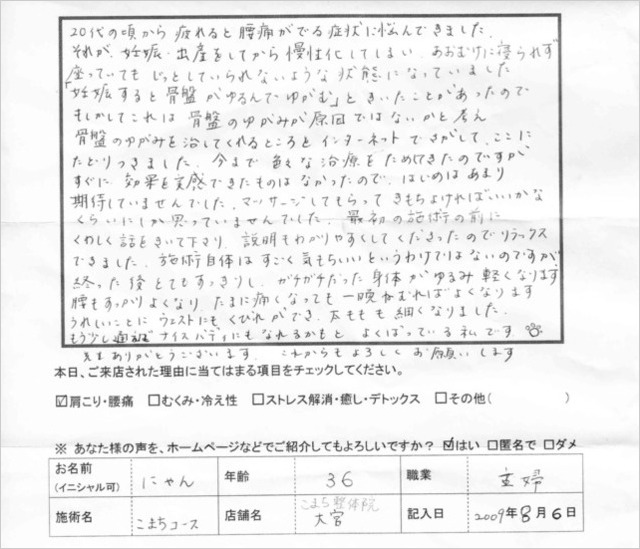 20代の頃から疲れると腰痛がでる症状に悩んできました。
それが、妊娠・出産をしてから慢性化してしまい、あおむけに寝られず
座っていてもじっとしていられないような状態になっていました
「妊娠すると骨盤がゆるんでゆがむ」ときいたことがあったので
もしかしてこれは骨盤のゆがみが原因ではないかと考え
骨盤のゆがみを治してくれるところをインターネットでさがして、ここに
たどりつきました。今まで色々な治療をためしてきたのですが
すぐに効果を実感できたものはなかったので、はじめはあまり
期待していませんでした。マッサージしてもらってきもちよければいいかな
くらいにしか思っていませんでした。最初の施術の前に
くわしく話をきいて下さり、説明もわかりやすくしてくださったのでリラックス
できました。施術自体はすごく気もちいいというわけではないのですが
終った後とてもすっきりし、ガチガチだった身体がゆるみ軽くなります
腰もすっかりよくなり、たまに痛くなっても一晩ねむればよくなります
うれしいことにウエストにもくびれができ、太ももも細くなりました。
もう少し通えばナイスバディにもなれるかもと よくばっている私です。
先生ありがとうございます。これからもよろしくお願いします
本日、ご来店された理由に当てはまる項目をチェックしてください。
☑肩こり・腰痛 □むくみ・冷え性 □ストレス解消・癒し・デトックス □その他( )
※ あなた様の声を、ホームページなどでご紹介してもよろしいですか？ ☑はい □匿名で □ダメ
お名前 (イニシャル可) にゃん 年齢 36 職業 主婦
施術名 こまちコース 店舗名 こまち整体院 大宮 記入日 2009年8月6日